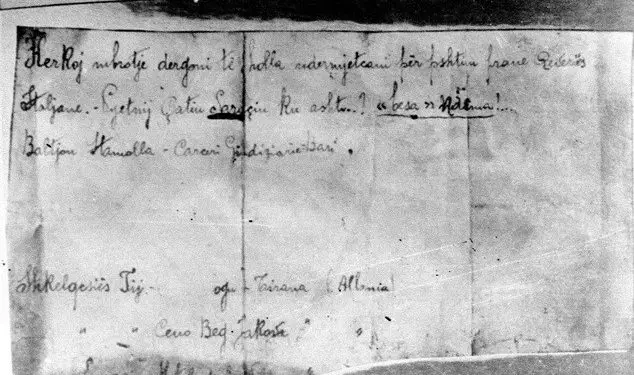 Kerkoj mbrotje dergoni të holla ndermjetcani për pshtim prane Qeveriës
Italjane. - Pyetnij Gatin Saraçin ku asht...? « besa » Ndema!...
Baltjon Stamolla - Carceri Giudiziarie Bari .
Shkelqesiës Tij - ogu - Tirana (Albania)
" " Ceno Beg " "